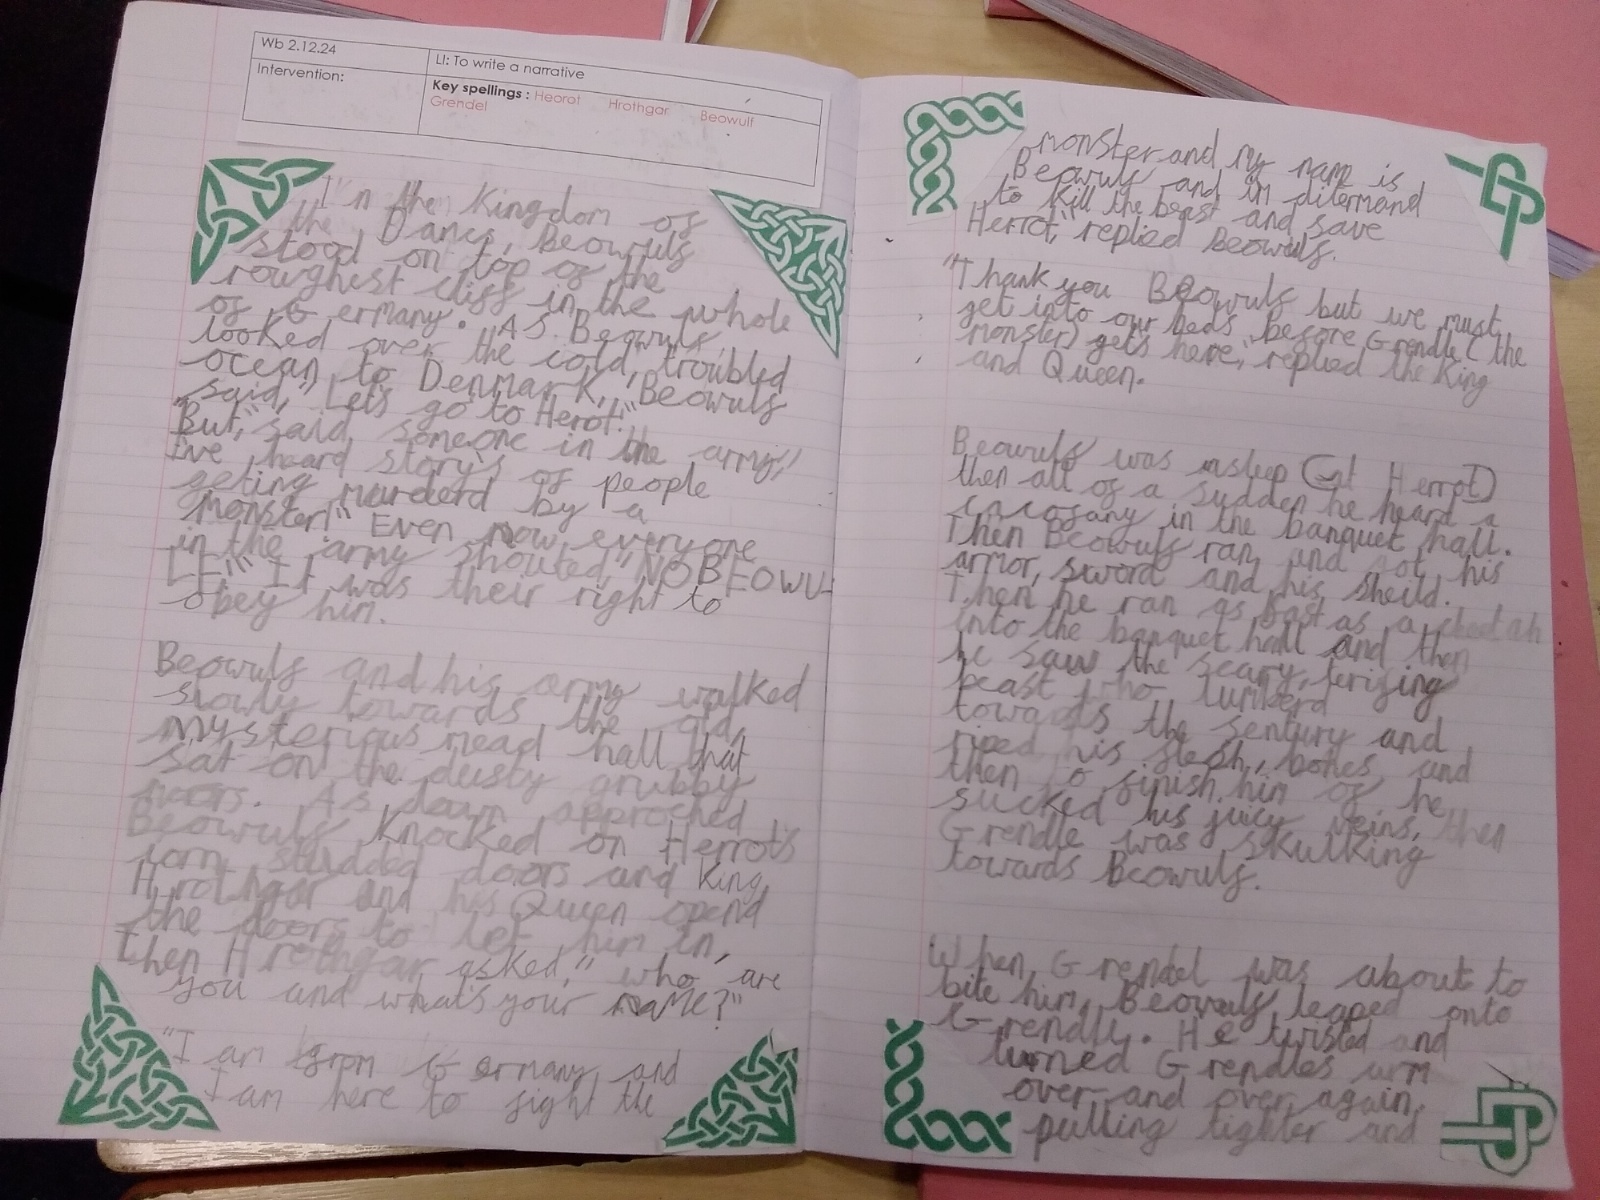 Wb 2.12.24
LI: To write a narrative
Intervention:
Key spellings : Heorot Hrothgar Beowulf
Grendel
I'n the Kingdom of
the Danes, Beowulf
stood on top of the
roughest cliff in the whole
of Germany. As Beowulf
looked over the cold, troubled
ocean, to Denmark, Beowulf
said, "Let's go to Herot!"
"But," said someone in the army,
I've heard story's of people
geting murderd by a
monster!" Even now everyone
in the army shouted, "NO BEOWU-
LF!" It was their right to
obey him.
Beowulf and his army walked
slowly towards the old,
mysterious mead hall that
sat on the dusty grubby
moors. As dawn approched
Beowulf knocked on Herrots
torn, studded doors and King
Hrothgar and his Queen opend
the doors to let him in,
then Hrothgar asked, "who are
you and what's your name?"
"I am from Germany and
I am here to fight the
monster and my name is
Beowulf and im ditermand
to kill the beast and save
Herrot," replied Beowulf.
"Thank you Beowulf but we must
get into our beds before Grendle (the
monster) gets here," replied the King
and Queen.
Beowulf was asleep (at Herrot)
then all of a sudden he heard a
cacofany in the banquet hall.
Then Beowulf ran and got his
armor, sword and his sheild.
Then he ran as fast as a cheetah
into the banquet hall and then
he saw the scary, terifing
beast who lumberd
towards the sentury and
riped his flesh, bones, and
then to finish him of he
sucked his juicy veins, then
Grendle was skulking
towards Beowulf.
When Grendel was about to
bite him, Beowulf leaped onto
Grendle. He twisted and
turned Grendles arm
over and over again,
pulling tighter and